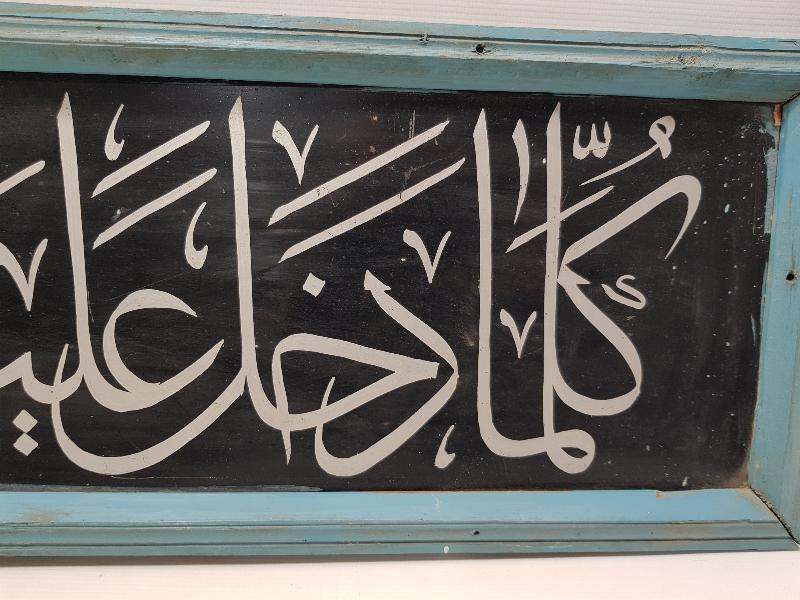 كُلَّمَا دَخَلَ عَلَيـ